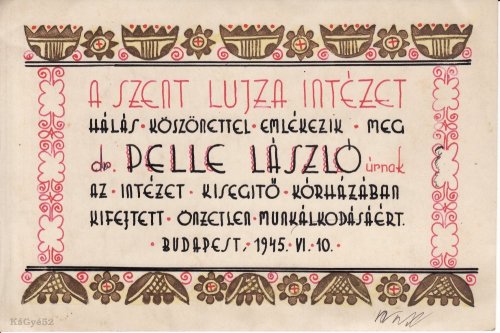 A SZENT LUJZA INTÉZET
HÁLÁS · KÖSZÖNETTEL · EMLÉKEZIK · MEG
dr. PELLE LÁSZLÓ úrnak
AZ · INTÉZET · KISEGITŐ · KÓRHÁZÁBAN
KIFEJTETT · ÖNZETLEN · MUNKÁLKODÁSÁÉRT.
· BUDAPEST, · 1945. · VI. · 10. ·
KéGyé52